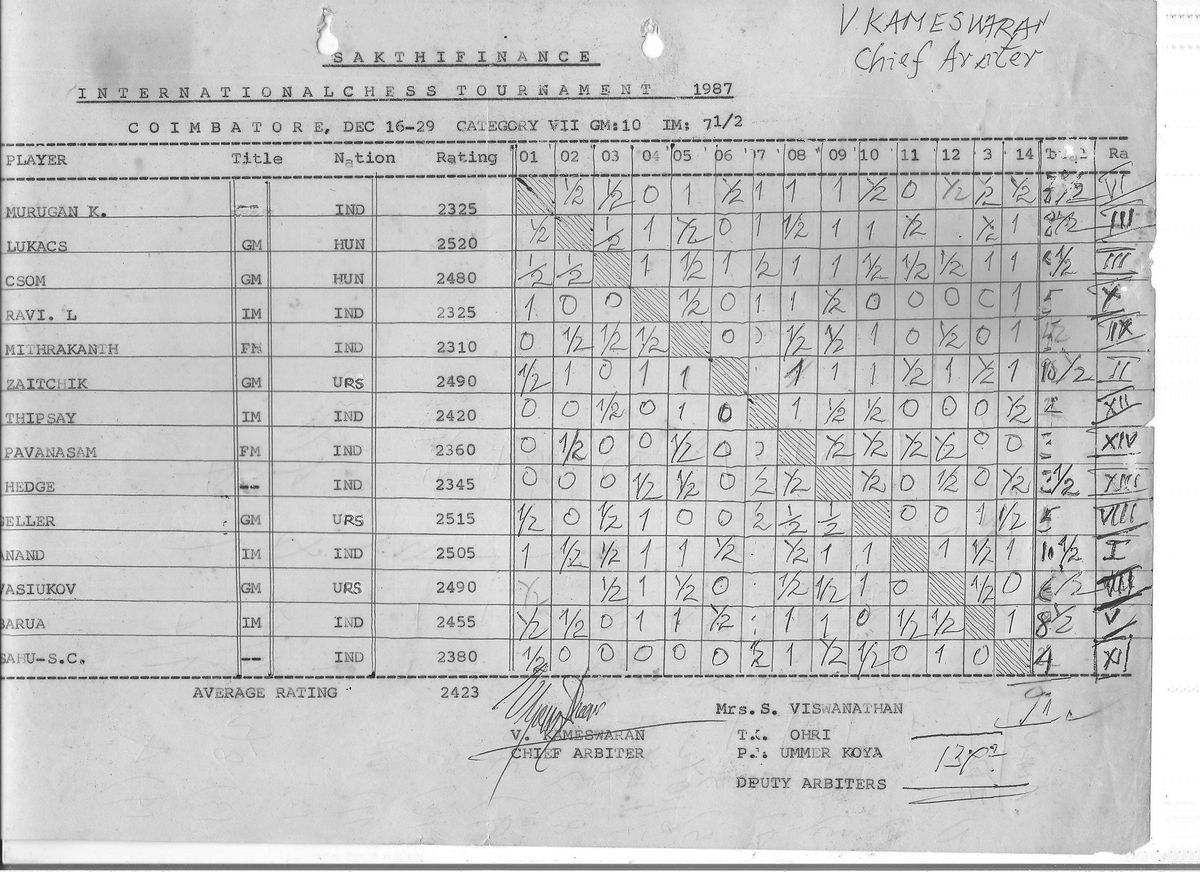 V KAMESWARAN
Chief Arbiter
SAKTHI FINANCE
INTERNATIONAL CHESS TOURNAMENT 1987
COIMBATORE, DEC 16-29 CATEGORY VII GM:10 IM: 7 1/2
PLAYER Title Nation Rating 01 02 03 04 05 06 07 08 09 10 11 12 3 14 Ra
MURUGAN K. -- IND 2325 ½ ½ 0 1 ½ 1 1 1 ½ 0 ½ ½ ½ VI
LUKACS GM HUN 2520 ½ ½ 1 ½ 0 1 ½ 1 1 ½ . ½ 1 III
CSOM GM HUN 2480 ½ ½ 1 ½ 1 ½ 1 1 ½ ½ ½ 1 1 III
RAVI. L IM IND 2325 1 0 0 ½ 0 1 1 ½ 0 0 0 0 1 5 X
MITHRAKANTH FM IND 2310 0 ½ ½ ½ 0 ½ ½ 1 0 ½ 0 1 IIX
ZAITCHIK GM URS 2490 ½ 1 0 1 1 1 1 1 ½ 1 ½ 1 10½ II
THIPSAY IM IND 2420 0 0 ½ 0 1 0 1 ½ ½ 0 0 0 ½ XII
PAVANASAM FM IND 2360 0 ½ 0 0 ½ 0 ½ ½ ½ ½ 0 0 XIV
HEDGE -- IND 2345 0 0 0 ½ ½ 0 ½ ½ 0 ½ 0 ½ XIII
GELLER GM URS 2515 ½ 0 ½ 1 0 0 ½ ½ 0 0 1 ½ 5 VIII
ANAND IM IND 2505 1 ½ ½ 1 1 ½ ½ 1 1 1 ½ 1 10½ I
VASIUKOV GM URS 2490 ½ ½ 1 ½ 0 ½ ½ 1 0 ½ 0 VII
BARUA IM IND 2455 ½ ½ 0 1 1 ½ 1 1 0 ½ ½ 1 8½ V
SAHU-S.C. -- IND 2380 ½ 0 0 0 0 0 ½ 1 ½ ½ 0 1 0 4 XI
AVERAGE RATING 2423
Mrs.S. VISWANATHAN
V. KAMESWARAN T.K. OHRI
CHIEF ARBITER UMMER KOYA
DEPUTY ARBITERS